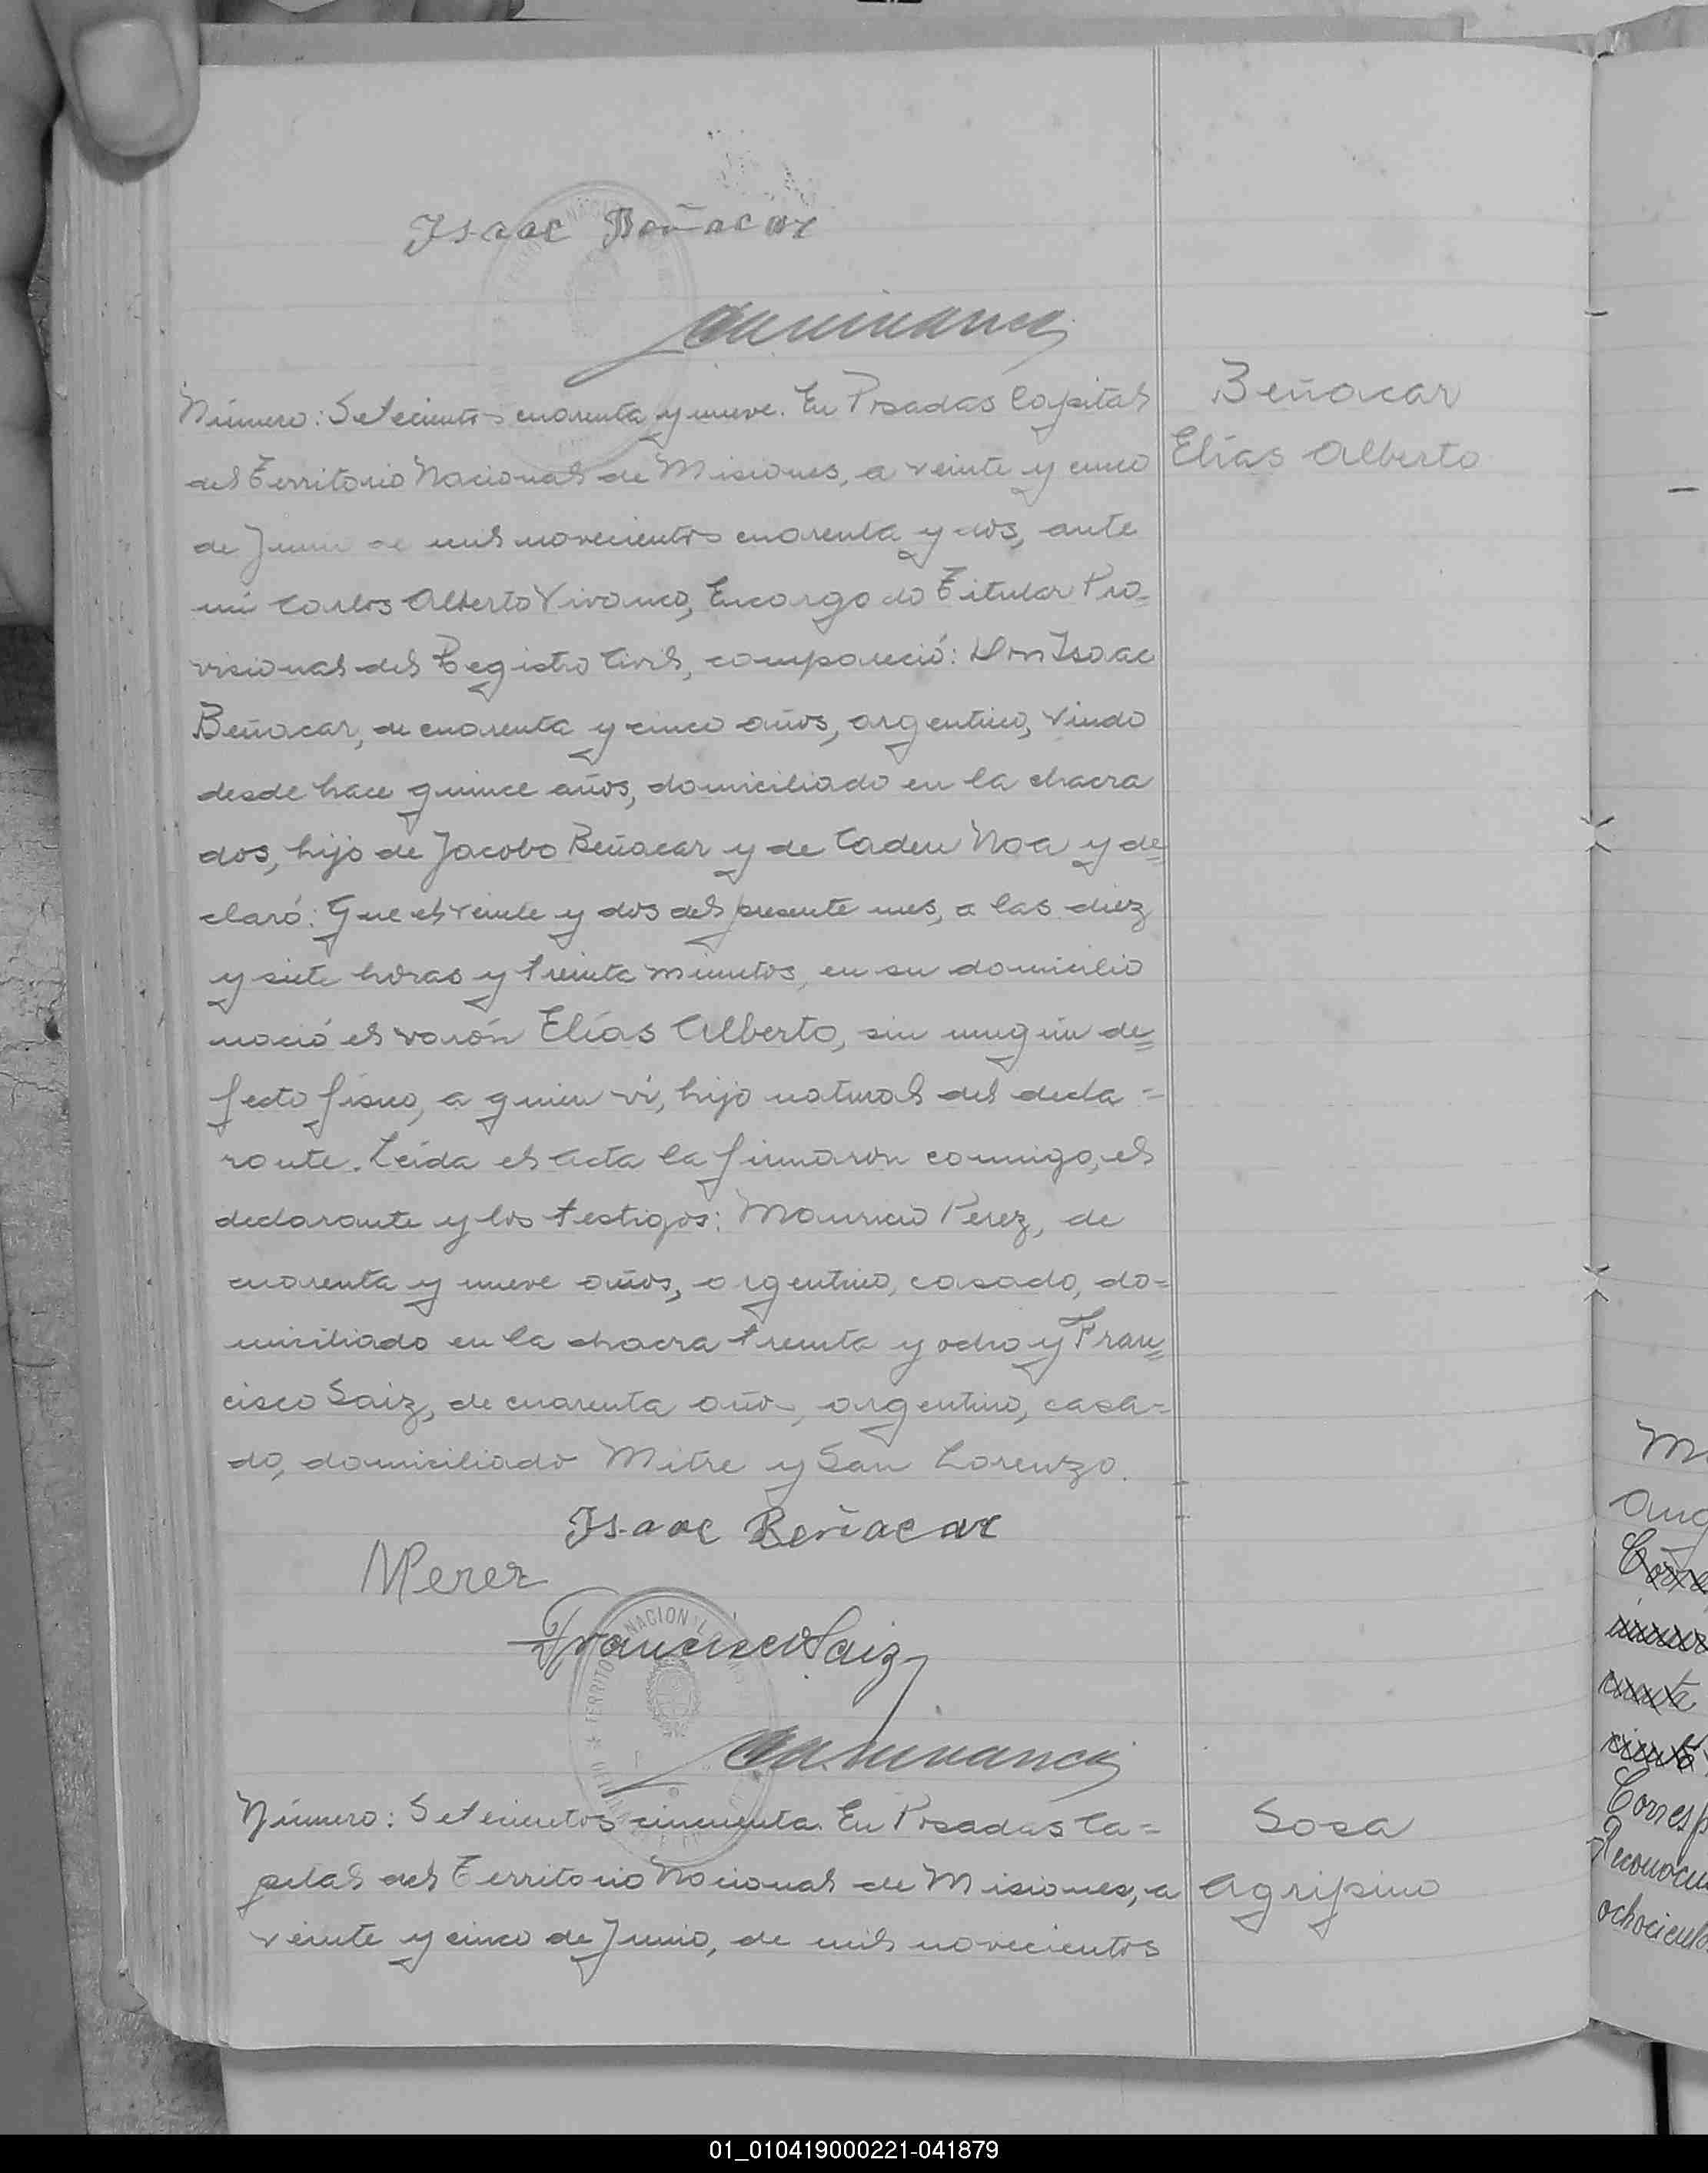 Isaac Beñacar
Número: Setecientos cuarenta y nueve. En Posadas Capital
del Territorio Nacional de Misiones, a veinte y cinco
de Junio de mil novecientos cuarenta y dos, ante
mi Carlos Alberto Vivanco, Encargado Titular Pro=
visional del Registro Civil, compareció: Don Isaac
Beñacar, de cuarenta y cinco años, argentino, viudo
desde hace quince años, domiciliado en la chacra
dos, hijo de Jacobo Beñacar y de Caden Noa y de=
claró: Que el veinte y dos del presente mes, a las diez
y siete horas y treinta minutos, en su domicilio
nació el varón Elías Alberto, sin ningún de=
fecto físico, a quien ví, hijo natural del decla=
rante. Leída el Acta la firmaron conmigo, el
declarante y los testigos: Mauricio Perez, de
cuarenta y nueve años, argentino, casado, do=
miciliado en la chacra treinta y ocho y Fran=
cisco Saiz, de cuarenta años, argentino, casa=
do, domiciliado Mitre y San Lorenzo.
Isaac Beñacar
MPerez
Francisco Saiz
CAVivanco
Número: Setecientos cincuenta. En Posadas Ca=
pital del Territorio Nacional de Misiones, a
veinte y cinco de Junio, de mil novecientos
Beñacar
Elías Alberto
Sosa
Agripino
Corresp
ochociento
01_010419000221-041879